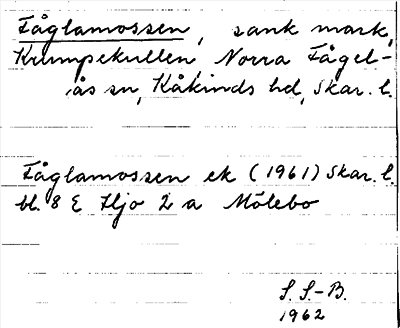 Fåglamossen, sank mark,
Krumpekullen, Norra Fågel-
ås sn, Kåkinds hd, Skar. l.
Fåglamossen ek (1961) Skar. l.
bl. 8 E Hjo 2 a Mölebo
S. S.-B.
1962